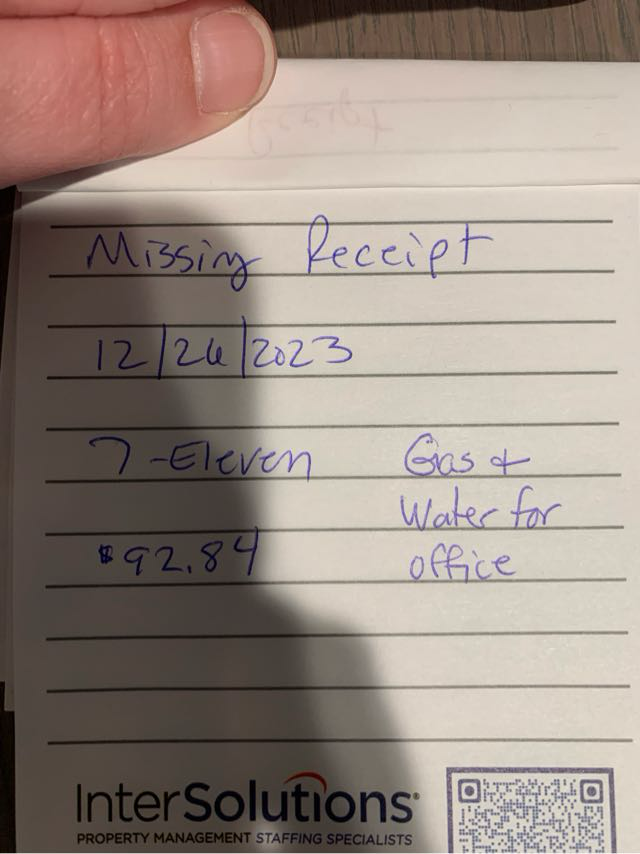 Missing Receipt
12/26/2023
7-Eleven Gas &
Water for
$92.84 office
InterSolutions®
PROPERTY MANAGEMENT STAFFING SPECIALISTS